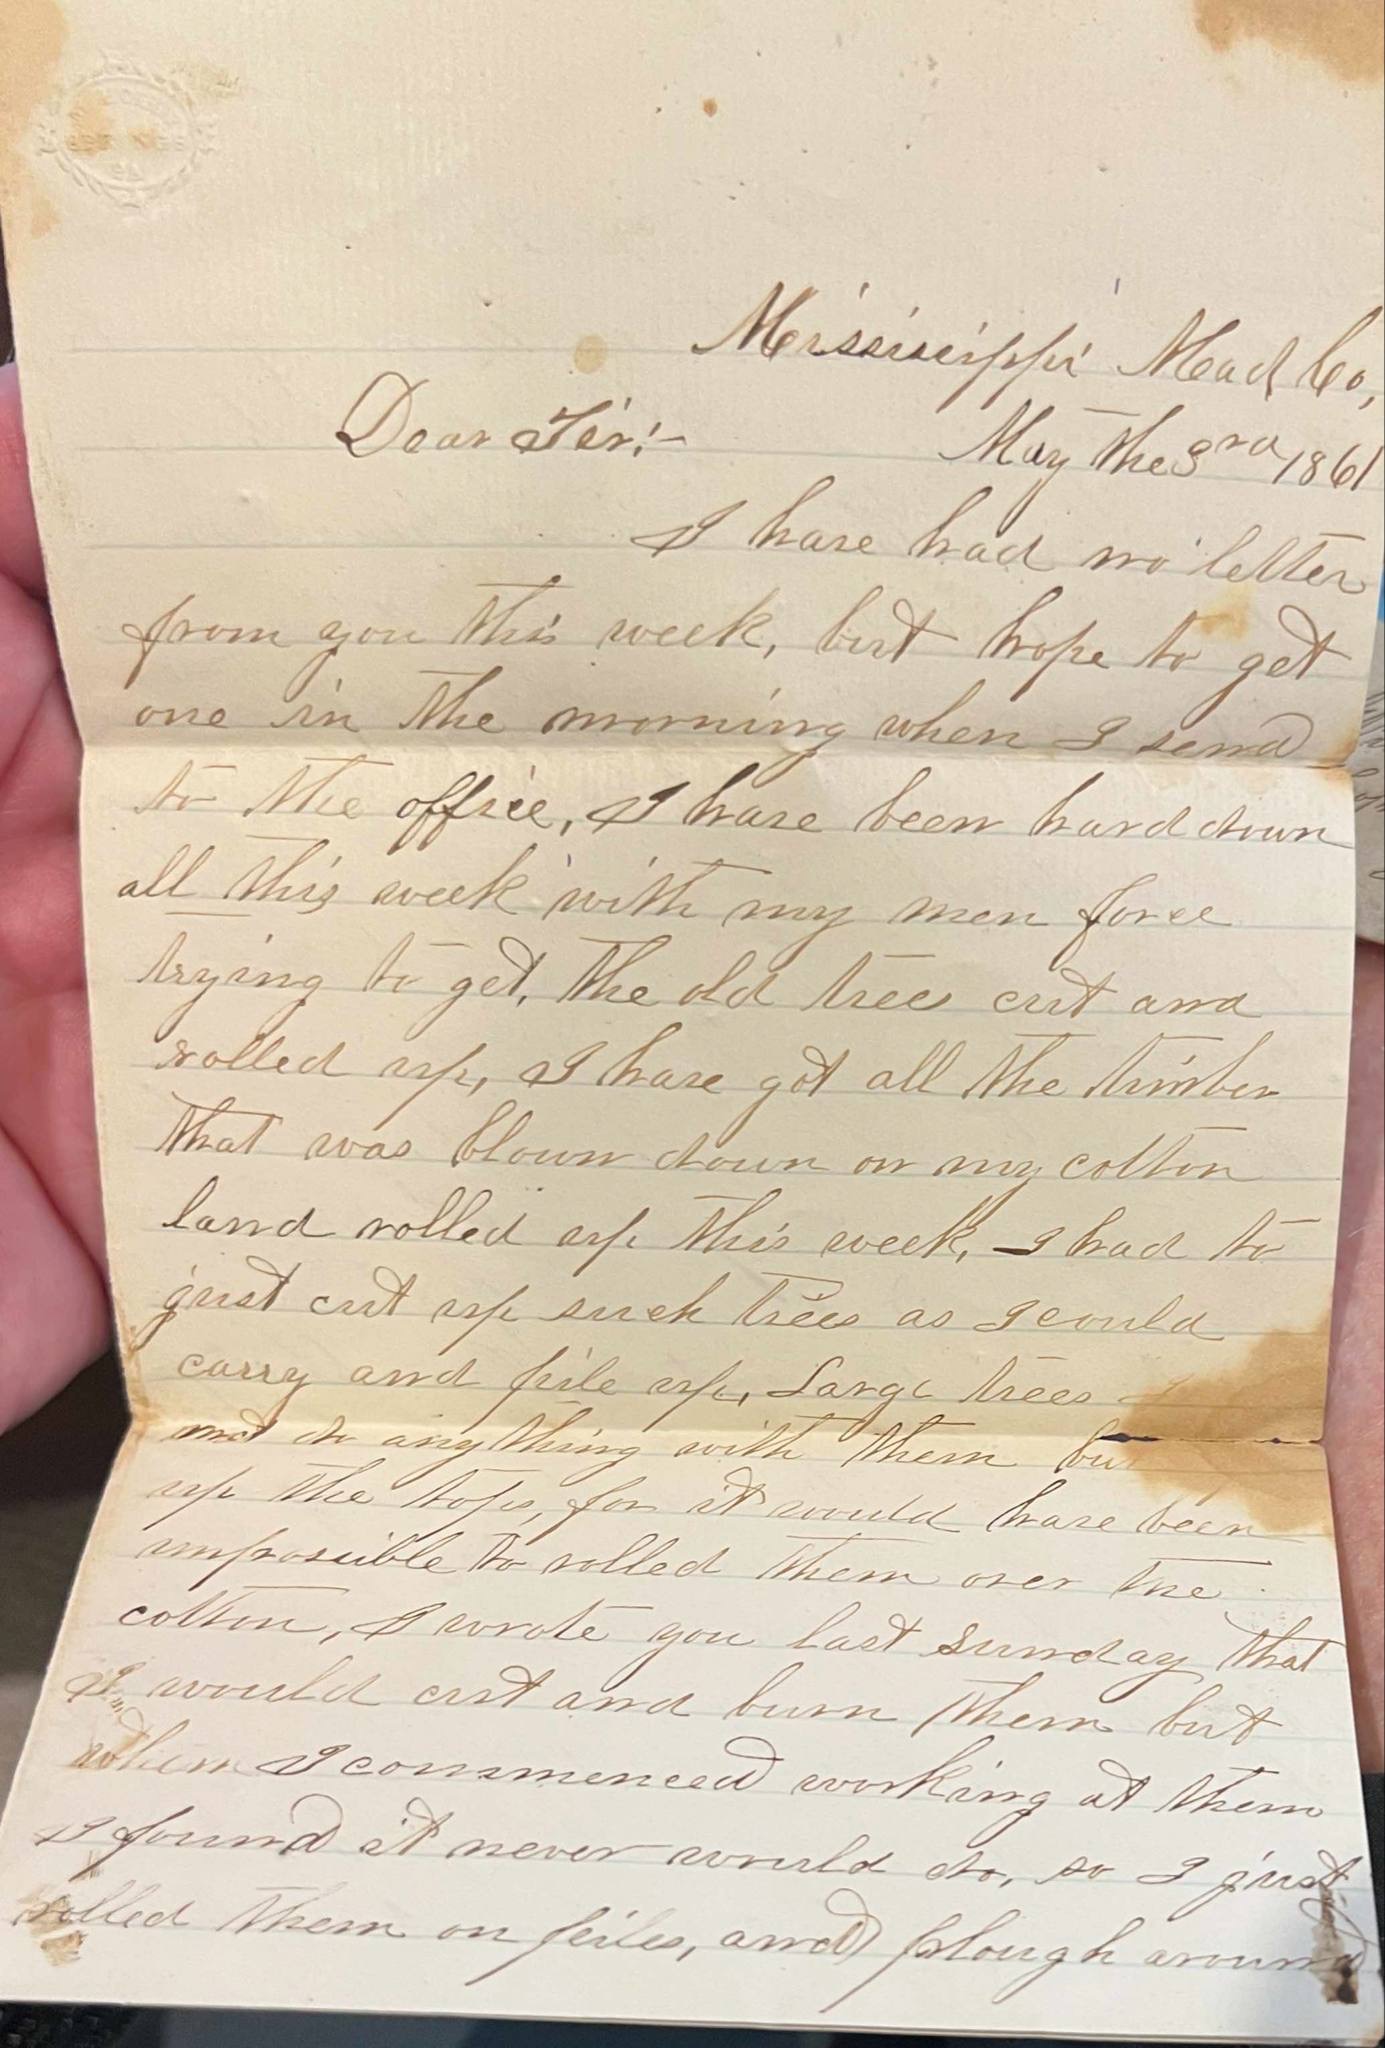 Mississippi Mad Co,
Dear Sir:- May the 3rd 1861
I have had no letter
from you this week, but hope to get
one in the morning when I send
to the office, I have been hard down
all this week with my men force
trying to get, the old trees cut and
rolled up, I have got all the timber
that was blown down on my cotton
land rolled up this week, I had to
just cut up such trees as I could
carry and pile up, Large trees I
not do anything with them bu
up the tops, for it would have been
impossible to rolled them over the
cotton, I wrote you last Sunday that
I would cut and burn them but
when I commenced working at them
I found it never would do, so I just
rolled them on piles, and plough around